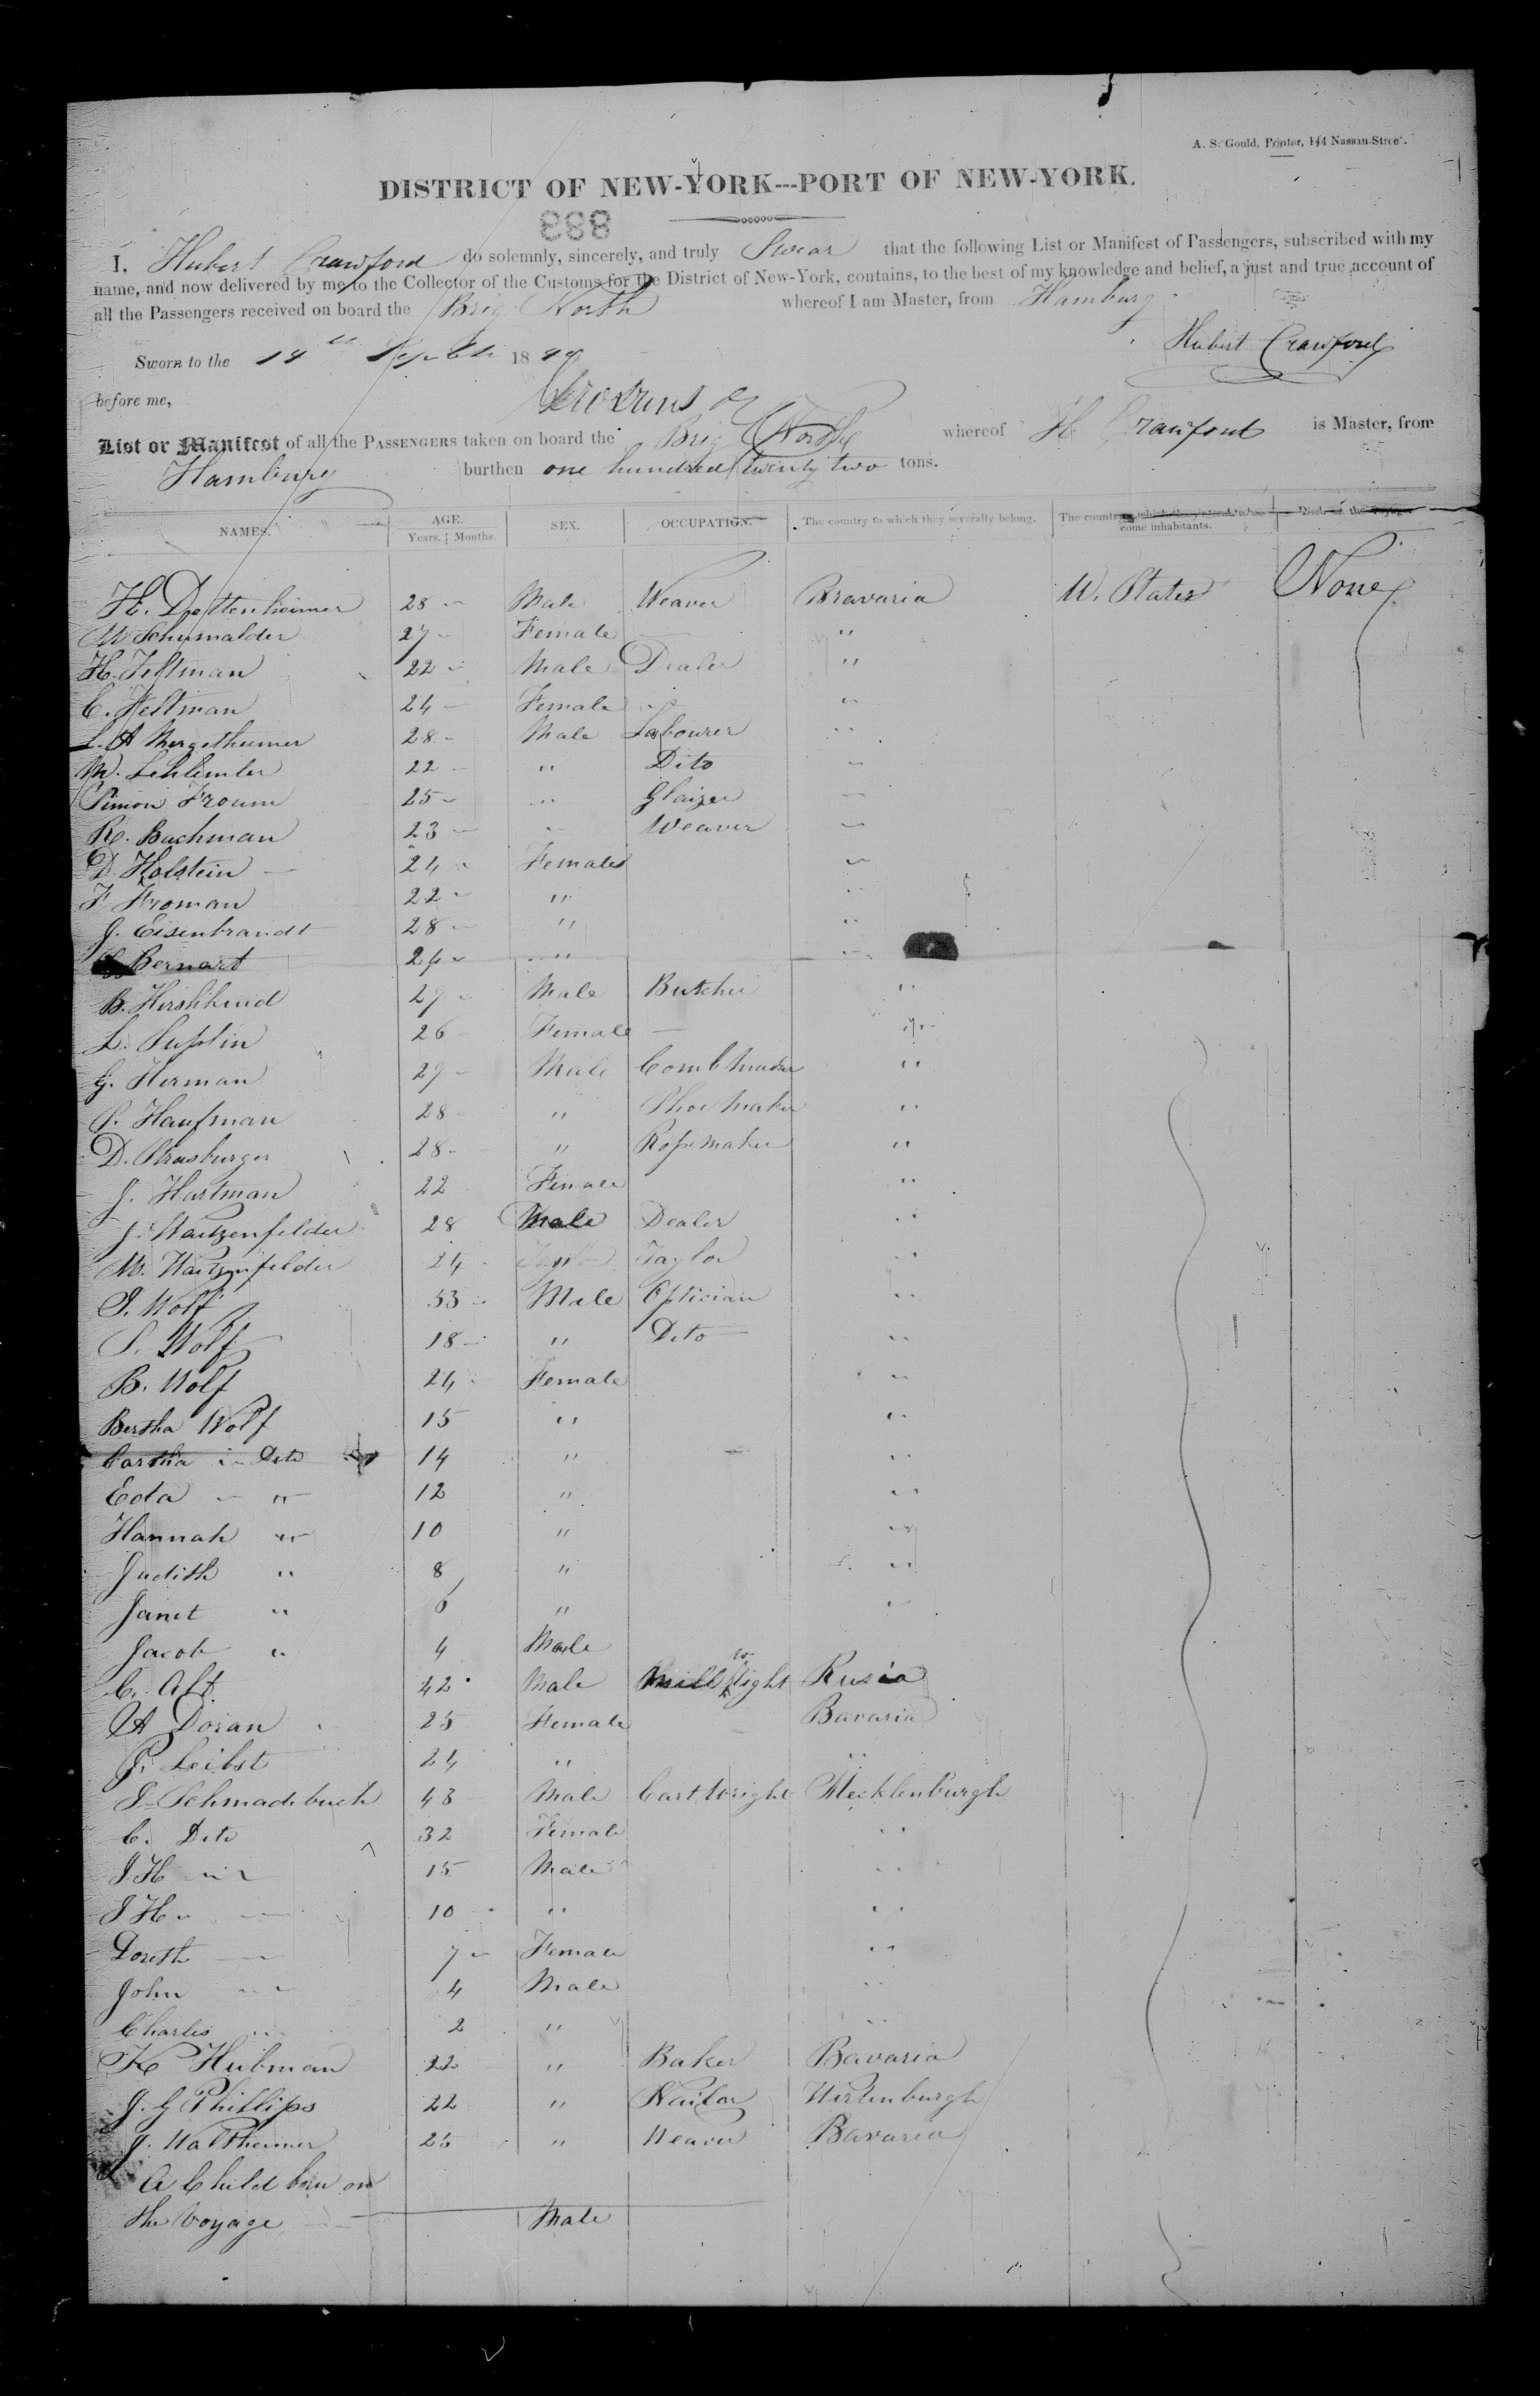 A. S. Gould, Printer, 144 Nassau-Street.
DISTRICT OF NEW-YORK---PORT OF NEW-YORK.
883
I, Hubert Crawford do solemnly, sincerely, and truly Swear that the following List or Manifest of Passengers, subscribed with my
name, and now delivered by me to the Collector of the Customs for the District of New-York, contains, to the best of my knowledge and belief, a just and true account of
all the Passengers received on board the Brig North whereof I am Master, from Hamburg
Hubert Crawford
Sworn to the 18
before me,
List or Manifest of all the PASSENGERS taken on board the Brig whereof H Crawford is Master, from
Hamburg burthen one hundred twenty two tons.
NAMES. AGE. Years. Months. SEX. OCCUPATION. The country to which they severally belong. The country come inhabitants.
H. Dettenheimer 28 Male Weaver Bravaria U. States None
27 Female "
H. Feltman 22 Male Dealer "
C. Feltman 24 Female "
L. A Mergetheimer 28 Male Labourer "
22 " Dito "
Simon Froum 25 " Glaizer "
R. Bachman 23 " Weaver "
D. Holstein 24 Females "
F Froman 22 " "
J. Eisenbrandt 28 " "
Bernart 24 " "
B. Hirshkind 29 Male Butcher "
L. Suplin 26 Female "
G. Herman 29 Male Comb maker "
Haufman 28 " Shoe maker "
D. Strasburger 28 " Ropemaker "
J. Hartman 22 Female "
J. Waitzenfelder 28 Male Dealer "
M. Waitzenfelder 24 Taylor "
S. Wolf 53 Male Optician "
S. Wolf 18 " Dito "
B. Wolf 24 Female "
Bertha Wolf 15 " "
Cartha " Dito 14 " "
Eda " " 12 " "
Hannah " 10 " "
Judith " 8 " "
Janet " 6 " "
Jacob " 4 Male
C. Alt 42 Male Mill wright Rusia
A Doran 25 Female Bavaria
Leibst 24 " "
J Schmadebuch 43 Male Cartwright Mecklenburgh
C. Dito 32 Female "
J H " 15 Male "
J H " 10 " "
Doreth 7 Female "
John 4 Male "
Charles 2 " "
K Hubman 22 " Baker Bavaria
J. G Phillips 22 " Nailor Wirtenburgh
J. Waltheimer 25 " Weaver Bavaria
A Child born on
the Voyage Male